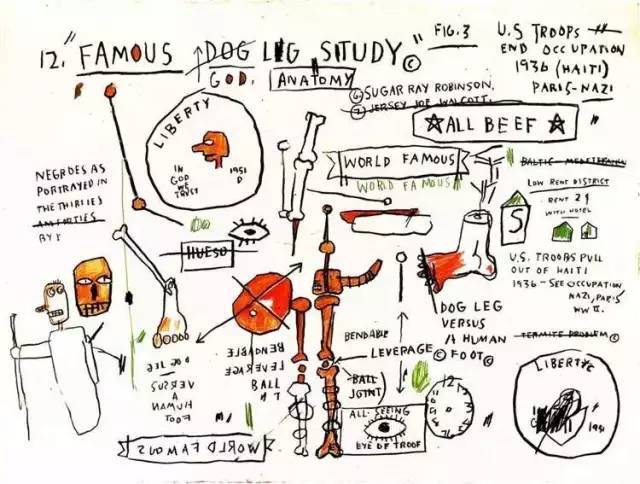 12. "FAMOUS DOG LEG SITUDY" ©
GOD. ANATOMY
FIG. 3
U.S TROOPS
END OCCUPATION
1936 (HAITI)
PARIS-NAZI
SUGAR RAY ROBINSON.
JERSEY JOE WALCOTT.
ALL BEEF
LIBERTY
IN
GOD
WE
TRUST
1951
D
WORLD FAMOUS
WORLD FAMOUS
LOW RENT DISTRICT
RENT 21
WITH HOTEL
S
NEGROES AS
PORTRAYED IN
THE THIRTIES
HUESO
U.S. TROOPS PULL
OUT OF HAITI
1936 - SEE OCCUPATION
NAZI, PARIS
WW II.
DOG LEG
VERSUS
A HUMAN
FOOT ©
TERMITE PROBLEM ©
BENDABLE
LEVERAGE ©
BALL
JOINT)
BENDABLE
LEVERAGE
BALL
DOG LEG
VERSUS
A
HUMAN
FOOT
WORLD FAMOUS
ALL SEEING
EYE OF TROOF
12
LIBERTY ©
1951